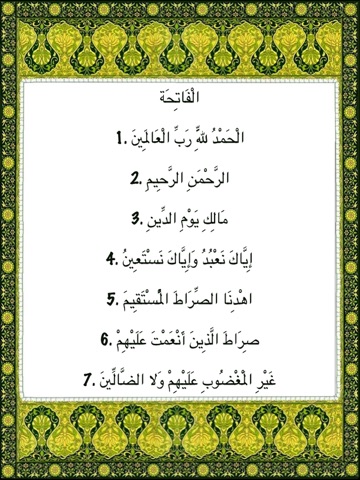 الْفَاتِحَة
1. الْحَمْدُ لِلَّهِ رَبِّ الْعَالَمِينَ
2. الرَّحْمَنِ الرَّحِيمِ
3. مَالِكِ يَوْمِ الدِّينِ
4. إِيَّاكَ نَعْبُدُ وَإِيَّاكَ نَسْتَعِينُ
5. اهْدِنَا الصِّرَاطَ الْمُسْتَقِيمَ
6. صِرَاطَ الَّذِينَ أَنْعَمْتَ عَلَيْهِمْ
7. غَيْرِ الْمَغْضُوبِ عَلَيْهِمْ وَلَا الضَّالِّينَ